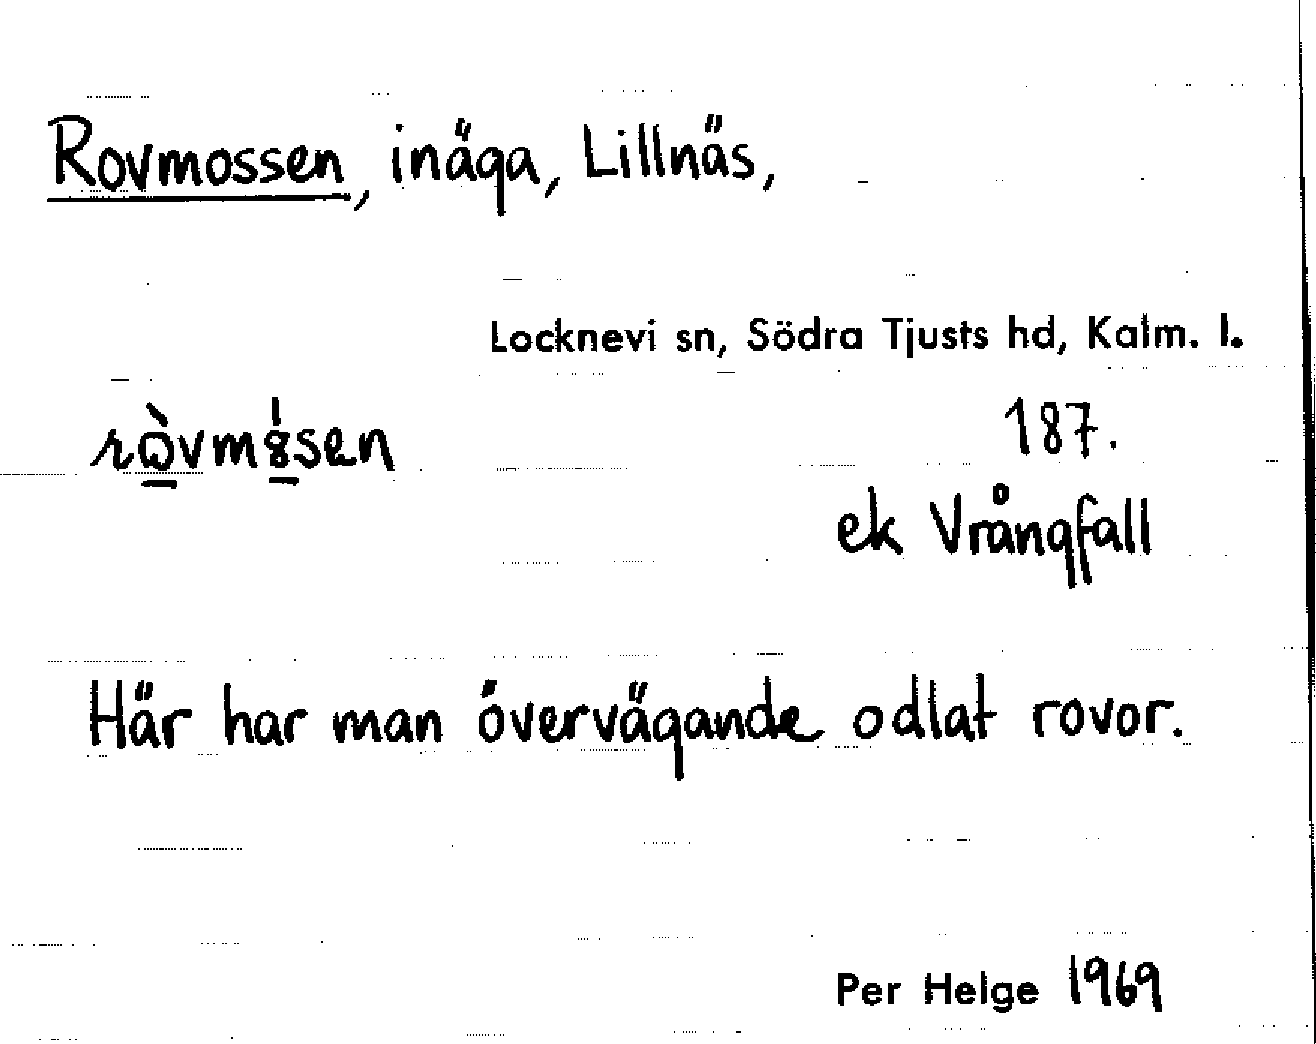 Rovmossen, inäga, Lillnäs,
Locknevi sn, Södra Tjusts hd, Kalm. l.
187.
ek Vrångfall
Här har man övervägande odlat rovor.
Per Helge 1969